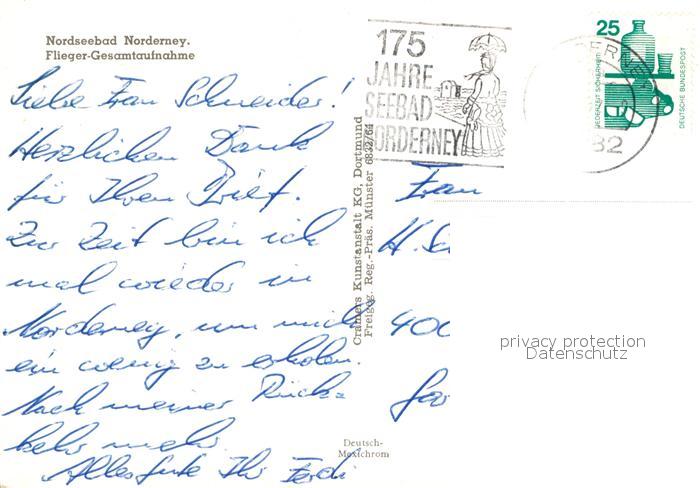 Nordseebad Norderney.
Flieger-Gesamtaufnahme
Liebe Frau Schneider!
Herzlichen Dank
für Ihren Brief.
Zur Zeit bin ich
mal wieder in
Norderney, um mich
ein wenig zu erholen.
Nach meiner Rück=
kehr mehr
Alles Gute Ihr Ferdi
Cramers Kunstanstalt KG, Dortmund
Freigeg. Reg.-Präs. Münster 6832/64
Deutsch-
Mexichrom
175
JAHRE
SEEBAD
NORDERNEY
25
JEDERZEIT SICHERHEIT
DEUTSCHE BUNDESPOST
82
Frau
H. Sc
400
privacy protection
Datenschutz